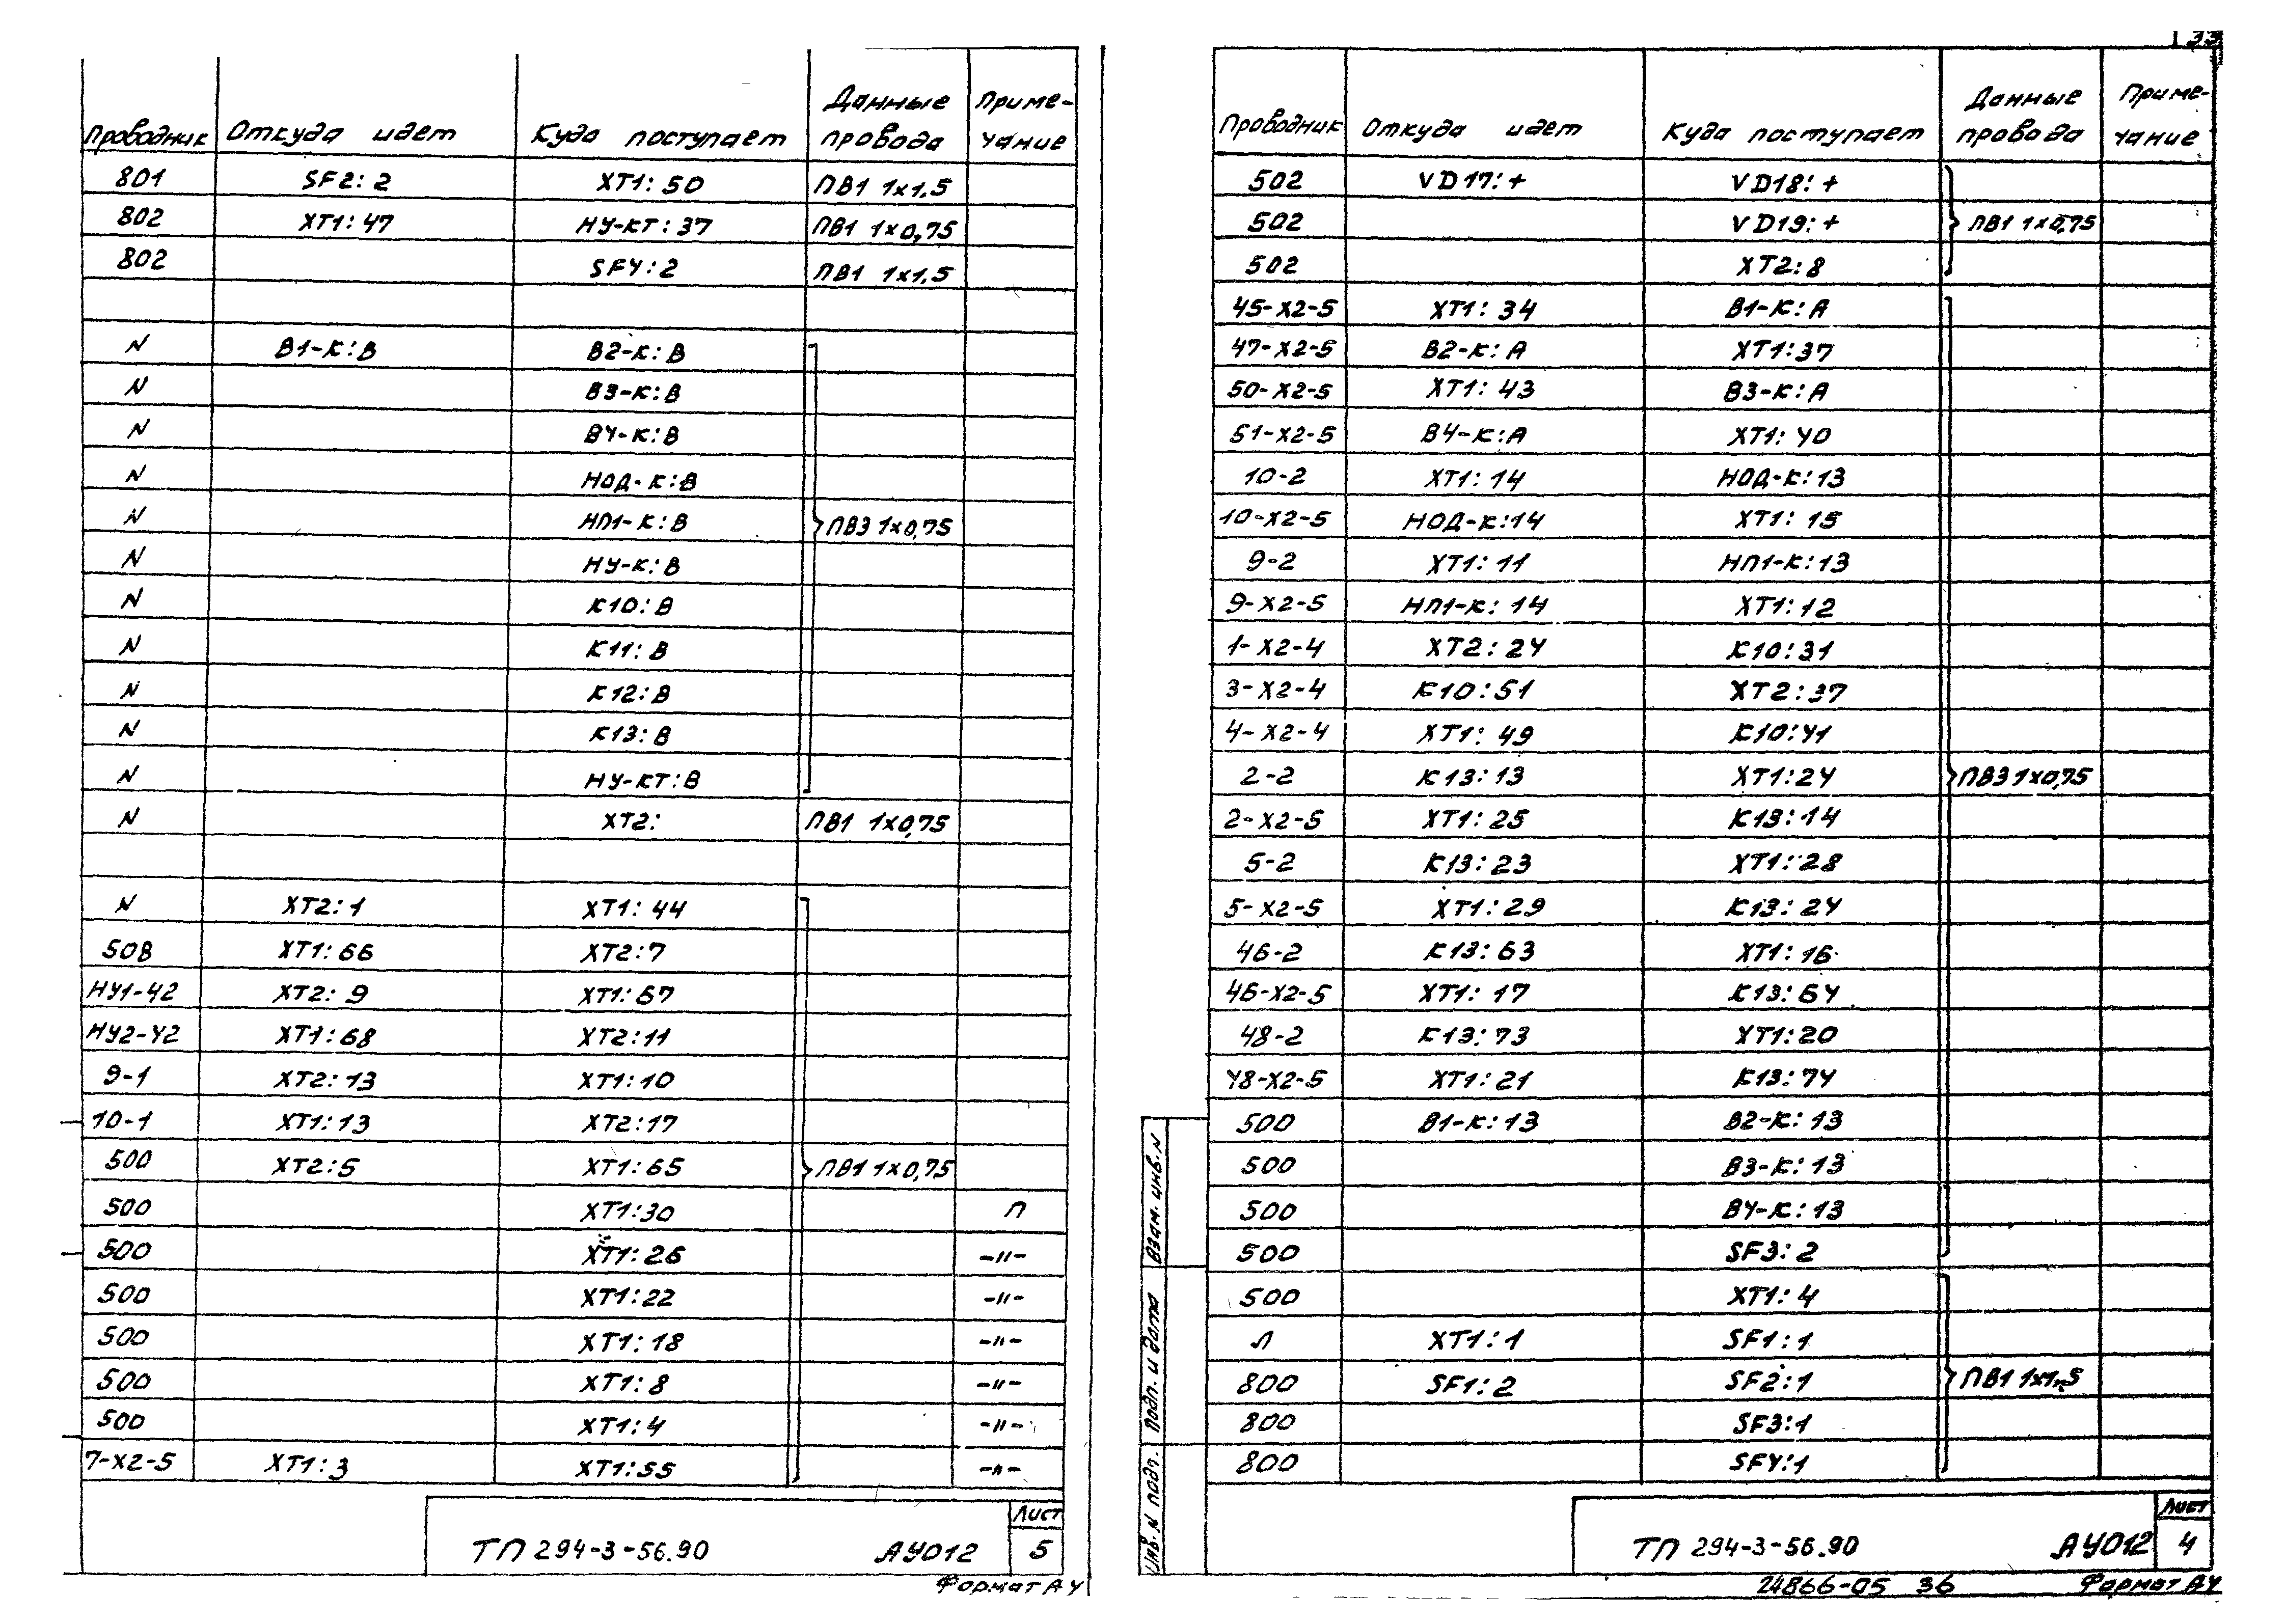 Проводник Откуда идет Куда поступает Данные провода Приме-чание
801 SF2:2 XT1:50 ПВ1 1х1.5
802 XT1:47 НУ-КТ:37 ПВ1 1х0,75
802 SF4:2 ПВ1 1х1,5
N В1-К:В В2-К:В
N В3-К:В
N В4-К:В
N НОД-К:В
N НП1-К:В ПВ3 1х0,75
N НУ-К:В
N К10:В
N К11:В
N К12:В
N К13:В
N НУ-КТ:В
N XT2: ПВ1 1х0,75
N XT2:1 XT1:44
50В XT1:66 XT2:7
НУ1-42 XT2:9 XT1:67
НУ2-42 XT1:68 XT2:11
9-1 XT2:13 XT1:10
10-1 XT1:13 XT2:17
500 XT2:5 XT1:65 ПВ1 1х0,75
500 XT1:30 П
500 XT1:26 -"-
500 XT1:22 -"-
500 XT1:18 -"-
500 XT1:8 -"-
500 XT1:4 -"-
7-X2-5 XT1:3 XT1:55 -"-
ТП 294-3-56.90 АУ012 Лист 5
Формат А4
33
Проводник Откуда идет Куда поступает Данные провода Приме-чание
502 VD17:+ VD18:+
502 VD19:+ ПВ1 1х0,75
502 XT2:8
45-X2-5 XT1:34 В1-К:А
47-X2-5 В2-К:А XT1:37
50-X2-5 XT1:43 В3-К:А
51-X2-5 В4-К:А XT1:40
10-2 XT1:14 НОД-К:13
10-X2-5 НОД-К:14 XT1:15
9-2 XT1:11 НП1-К:13
9-X2-5 НП1-К:14 XT1:12
1-X2-4 XT2:24 К10:31
3-X2-4 К10:51 XT2:37
4-X2-4 XT1:49 К10:41
2-2 К13:13 XT1:24 ПВ3 1х0,75
2-X2-5 XT1:25 К13:14
5-2 К13:23 XT1:28
5-X2-5 XT1:29 К13:24
46-2 К13:63 XT1:16
46-X2-5 XT1:17 К13:64
48-2 К13:73 XT1:20
48-X2-5 XT1:21 К13:74
500 В1-К:13 В2-К:13
500 В3-К:13
500 В4-К:13
500 SF3:2
500 XT1:4
Л XT1:1 SF1:1
800 SF1:2 SF2:1 ПВ1 1х1,5
800 SF3:1
800 SF4:1
Взам. инв. N
Подп. и дата
Инв. N подл.
ТП 294-3-56.90 АУ012 Лист 4
24866-05 36 Формат А4